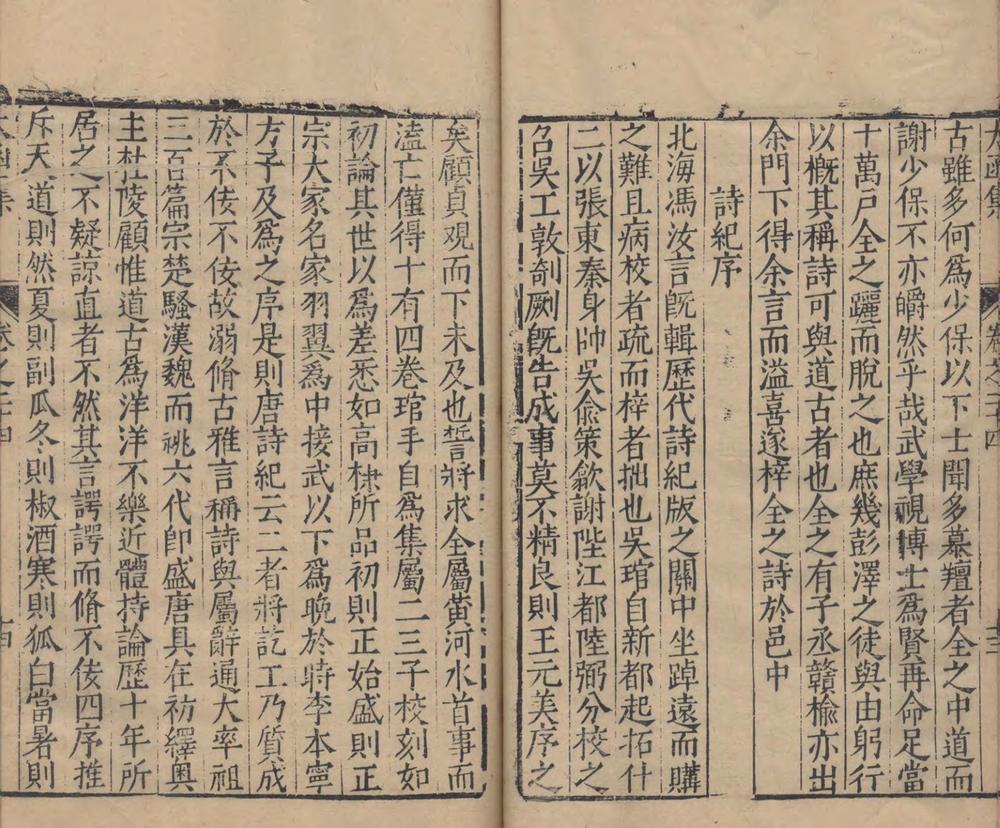 太函集 卷之二十四 十三
古雖多何爲少保以下士聞多慕羶者全之中道而
謝少保不亦皭然乎哉武學視博士爲賢再命足當
十萬戶全之躧而脫之也庶幾彭澤之徒與由躬行
以概其稱詩可與道古者也全之有子丞贛榆亦出
余門下得余言而溢喜遂梓全之詩於邑中
詩紀序
北海馮汝言旣輯歷代詩紀版之關中坐踔遠而購
之難且病校者疏而梓者拙也吳琯自新都起拓什
二以張東秦身帥吳俞策歙謝陛江都陸弼分校之
召吳工敦剞劂旣告成事莫不精良則王元美序之
矣顧貞觀而下未及也誓將求全屬黄河水首事而
溘亡僅得十有四卷琯手自爲集屬二三子校刻如
初論其世以爲差悉如高棅所品初則正始盛則正
宗大家名家羽翼爲中接武以下爲晚於時李本寧
方子及爲之序是則唐詩紀云二者將訖工乃質成
於不佞不佞故溺脩古雅言稱詩與屬辭通大率祖
三百篇宗楚騷漢魏而祧六代卽盛唐具在祊繹奥
主杜陵顧惟道古爲洋洋不樂近體持論歷十年所
居之不疑諒直者不然其言諤諤而脩不佞四序推
斥天道則然夏則副瓜冬則椒酒寒則狐白當暑則
太函集 卷之二十四 十四